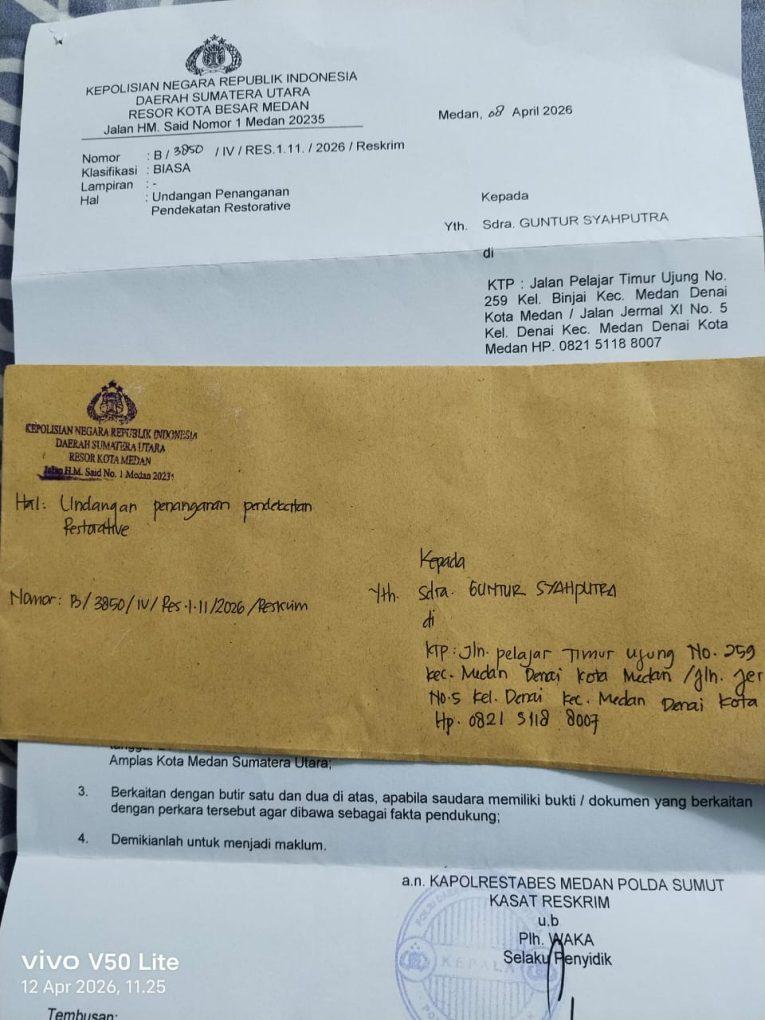 KEPOLISIAN NEGARA REPUBLIK INDONESIA
DAERAH SUMATERA UTARA
RESOR KOTA BESAR MEDAN
Jalan HM. Said Nomor 1 Medan 20235
Medan, 08 April 2026
Nomor : B / 3850 / IV / RES.1.11. / 2026 / Reskrim
Klasifikasi : BIASA
Lampiran : -
Hal : Undangan Penanganan
Pendekatan Restorative
Kepada
Yth. Sdra. GUNTUR SYAHPUTRA
di
KTP : Jalan Pelajar Timur Ujung No.
259 Kel. Binjai Kec. Medan Denai
Kota Medan / Jalan Jermal XI No. 5
Kel. Denai Kec. Medan Denai Kota
Medan HP. 0821 5118 8007
KEPOLISIAN NEGARA REPUBLIK INDONESIA
DAERAH SUMATERA UTARA
RESOR KOTA MEDAN
Jalan H.M. Said No. 1 Medan 20235
Hal: Undangan penanganan pendekatan
Restorative
Kepada
Nomor: B/3850/IV/Res.1.11/2026/Reskrim
Yth. Sdra. GUNTUR SYAHPUTRA
di
KTP: Jln. pelajar Timur ujung No. 259
kec. Medan Denai Kota Medan /Jln. Jer
No.5 kel. Denai kec. Medan Denai Kota
Hp. 0821 5118 8007
Amplas Kota Medan Sumatera Utara;
3. Berkaitan dengan butir satu dan dua di atas, apabila saudara memiliki bukti / dokumen yang berkaitan
dengan perkara tersebut agar dibawa sebagai fakta pendukung;
4. Demikianlah untuk menjadi maklum.
a.n. KAPOLRESTABES MEDAN POLDA SUMUT
KASAT RESKRIM
u.b
Plh. WAKA
Selaku Penyidik
KEPALA
vivo V50 Lite
12 Apr 2026, 11.25
Tembusan: